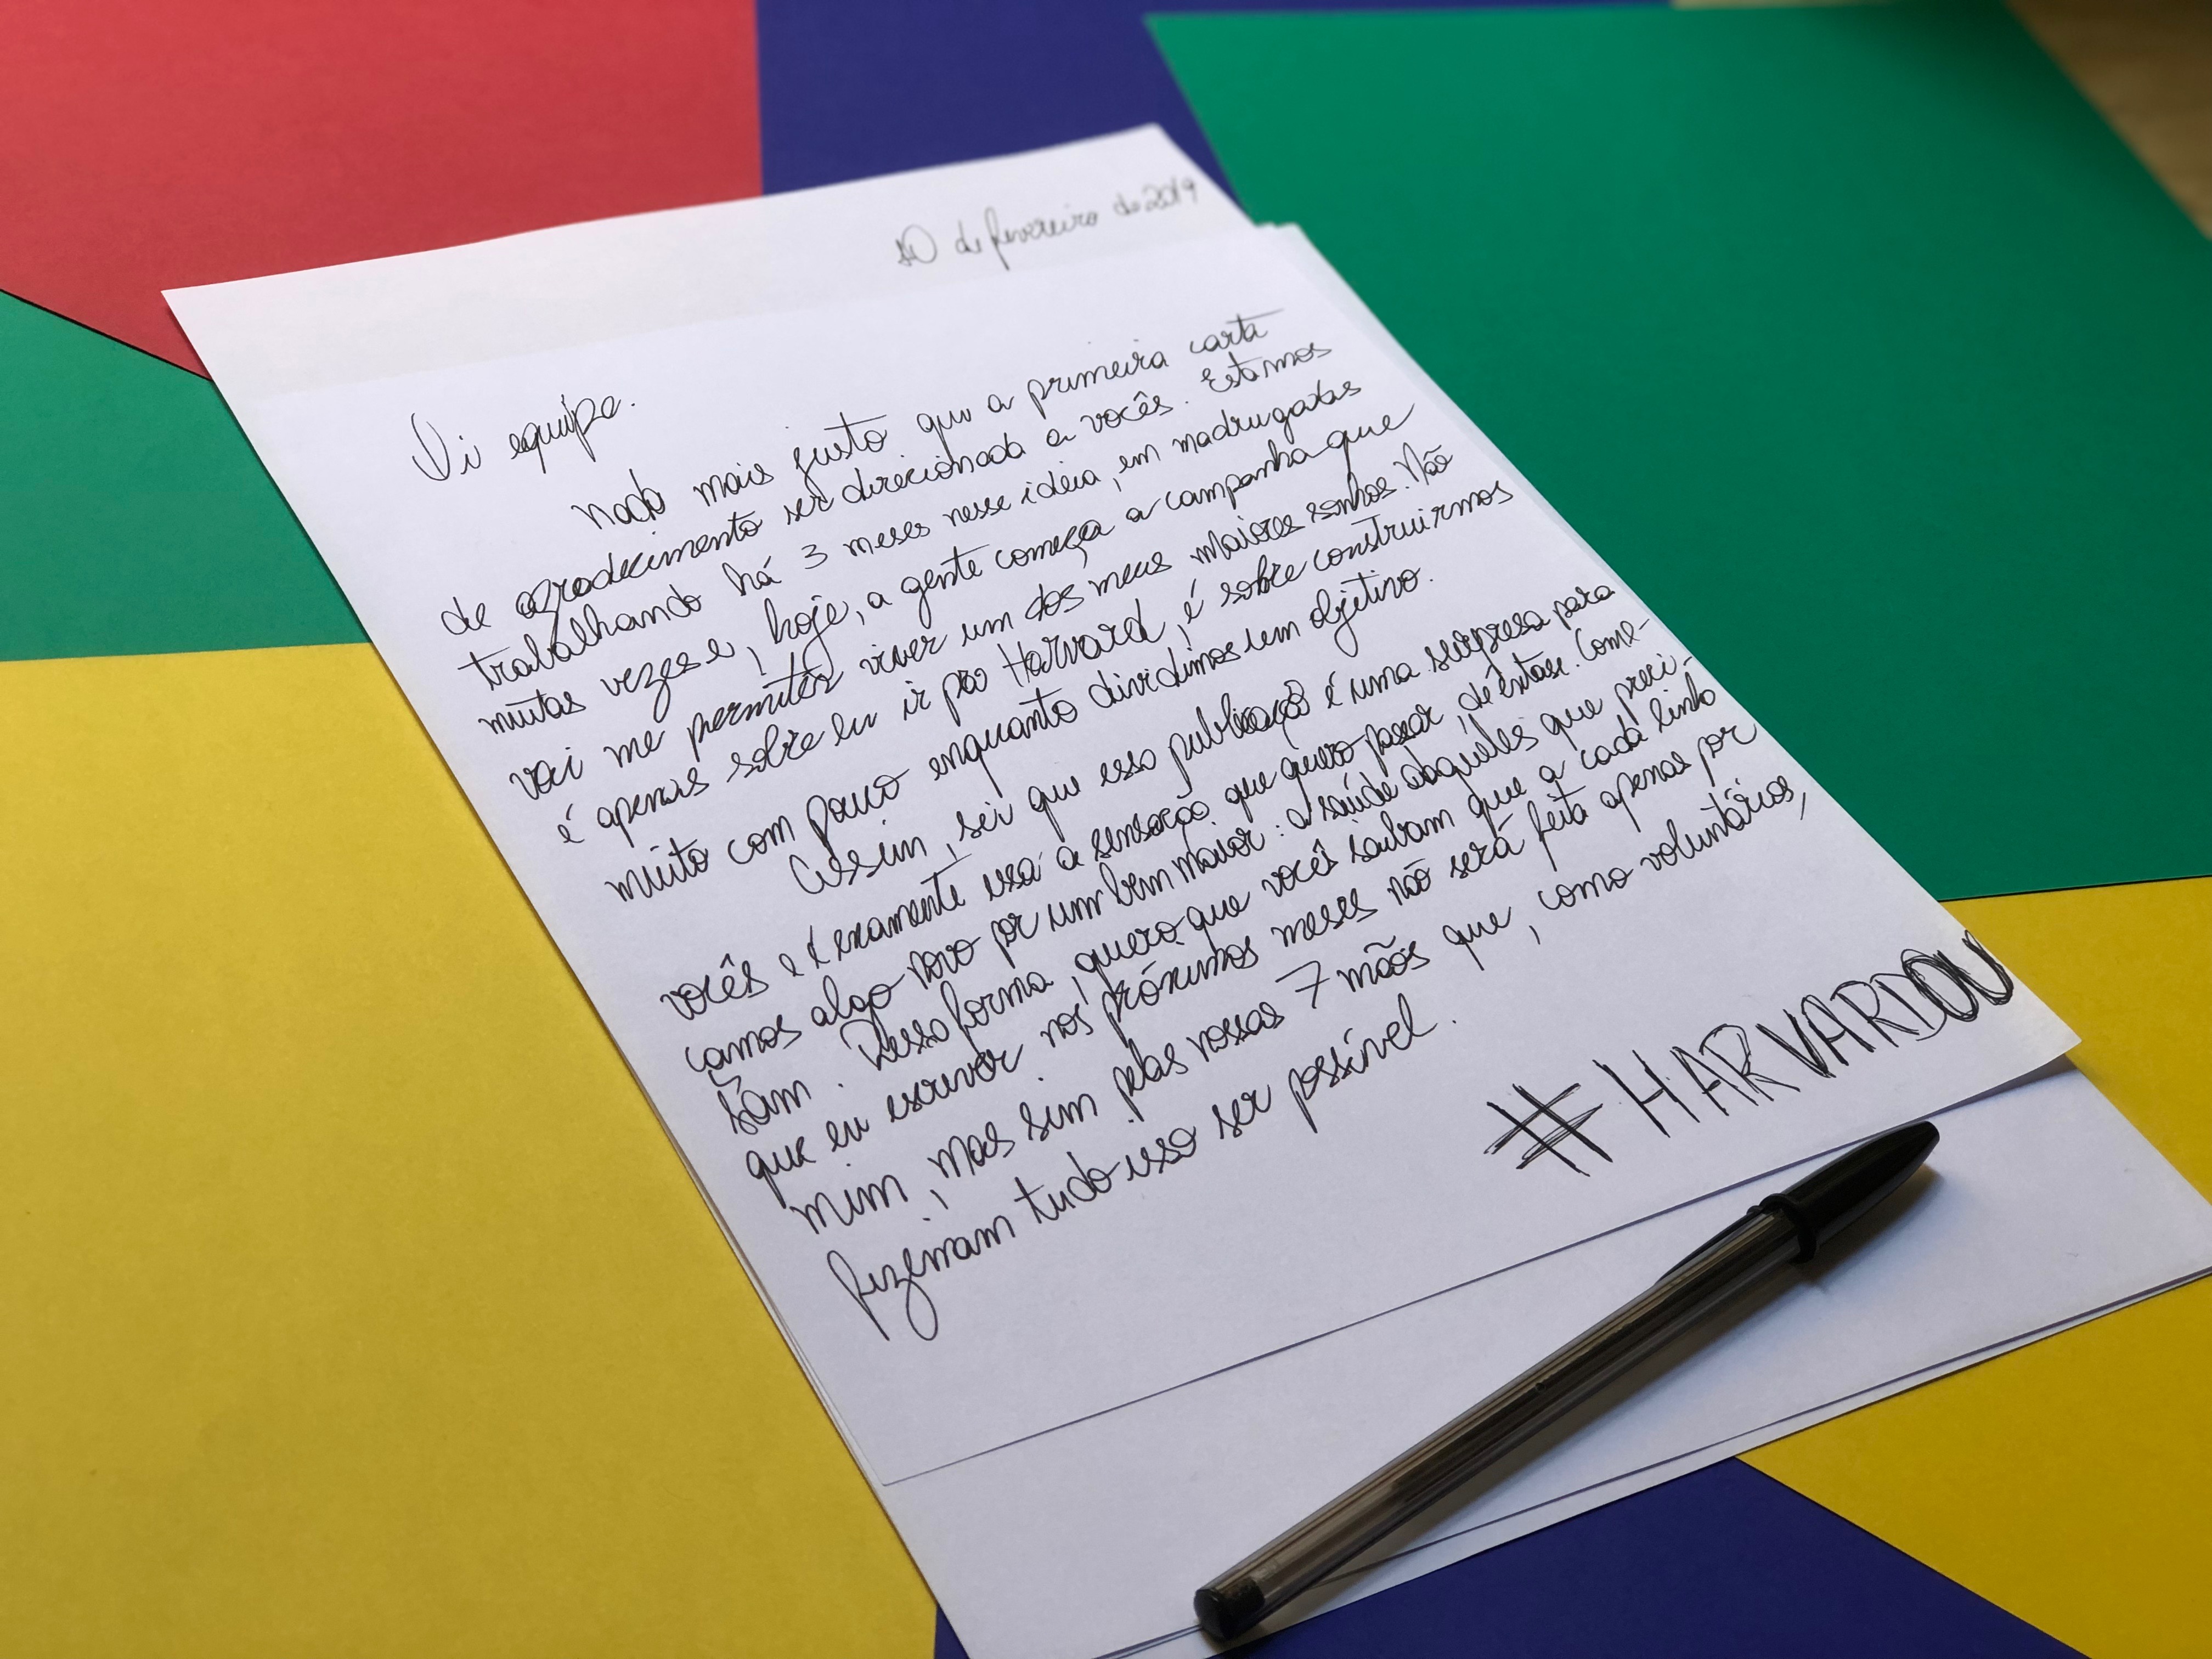 10 de fevereiro de 2019
Oi equipe.
Nada mais justo que a primeira carta
de agradecimento ser direcionada a vocês. Estamos
trabalhando há 3 meses nesse idéia, em madrugadas
muitas vezes e, hoje, a gente começa a campanha que
vai me permitir viver um dos meus maiores sonhos. Não
é apenas sobre eu ir pro Harvard, é sobre construirmos
muito com pouco enquanto dividimos um objetivo.
Assim, sei que essa publicação é uma surpresa para
vocês e é examente essa a sensação que quero passar, de êxtase. Come-
çamos algo novo por um bem maior: a saúde daqueles que preci-
sam. Dessa forma, quero que vocês saibam que a cada linha
que eu escrever nos próximos meses não será feita apenas por
mim, mas sim pelas nossas 7 mãos que, como voluntários,
fizeram tudo isso ser possível.
#HARVARDOU